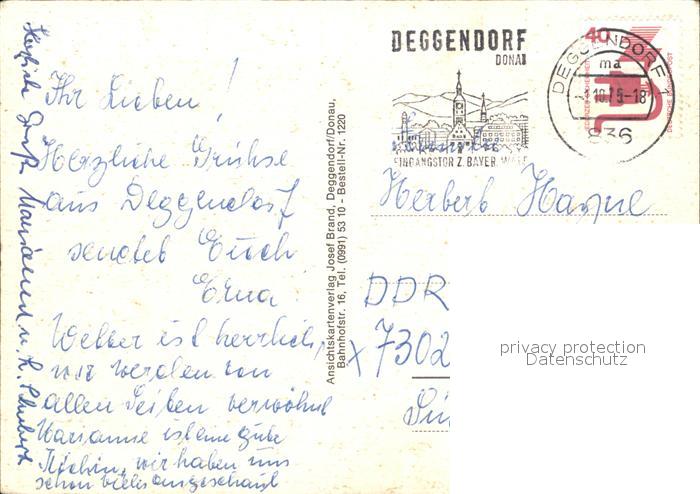 Ihr Lieben!
Herzliche Grüße
aus Deggendorf
sendet Euch
Erna
Wetter ist herrlich,
wir werden von
allen Seiten verwöhnt
Marianne ist eine gute
Köchin, wir haben uns
schon vieles angeschaut
Herzliche Grüße Marianne u. H. Schubert
Ansichtskartenverlag Josef Brand, Deggendorf/Donau,
Bahnhofstr. 16, Tel. (0991) 53 10 - Bestell-Nr. 1220
DEGGENDORF
DONAU
EINGANGSTOR Z. BAYER. WALD
DEGGENDORF 1
ma
10.75-18
836
40
DEUTSCHE BUNDESPOST
Familie
Herbert
DDR
x 7302
privacy protection
Datenschutz